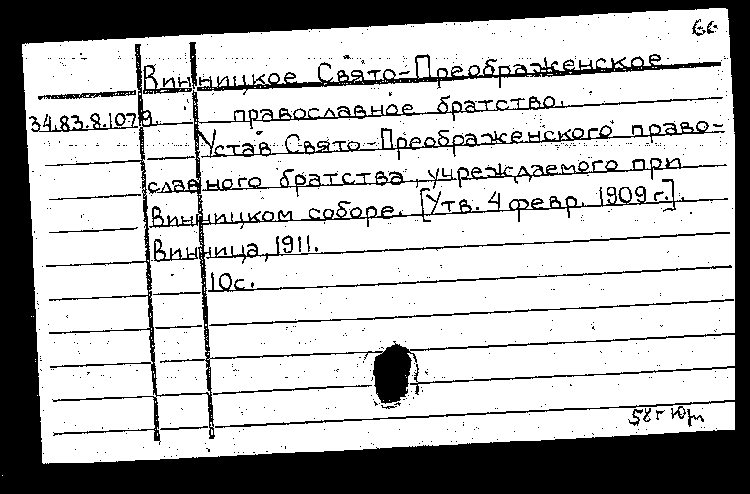 66
Винницкое Свято-Преображенское
34.83.8.1079. православное братство.
Устав Свято-Преображенского право-
славного братства, учреждаемого при
Винницком соборе. [Утв. 4 февр. 1909 г.].
Винница, 1911.
10с.
58г